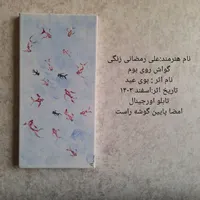 نام هنرمند:علی رمضانی زنگی
گواش روی بوم
نام اثر : بوی عید
تاریخ اثر:اسفند ۱۴۰۳
تابلو اورجینال
امضا پایین گوشه راست